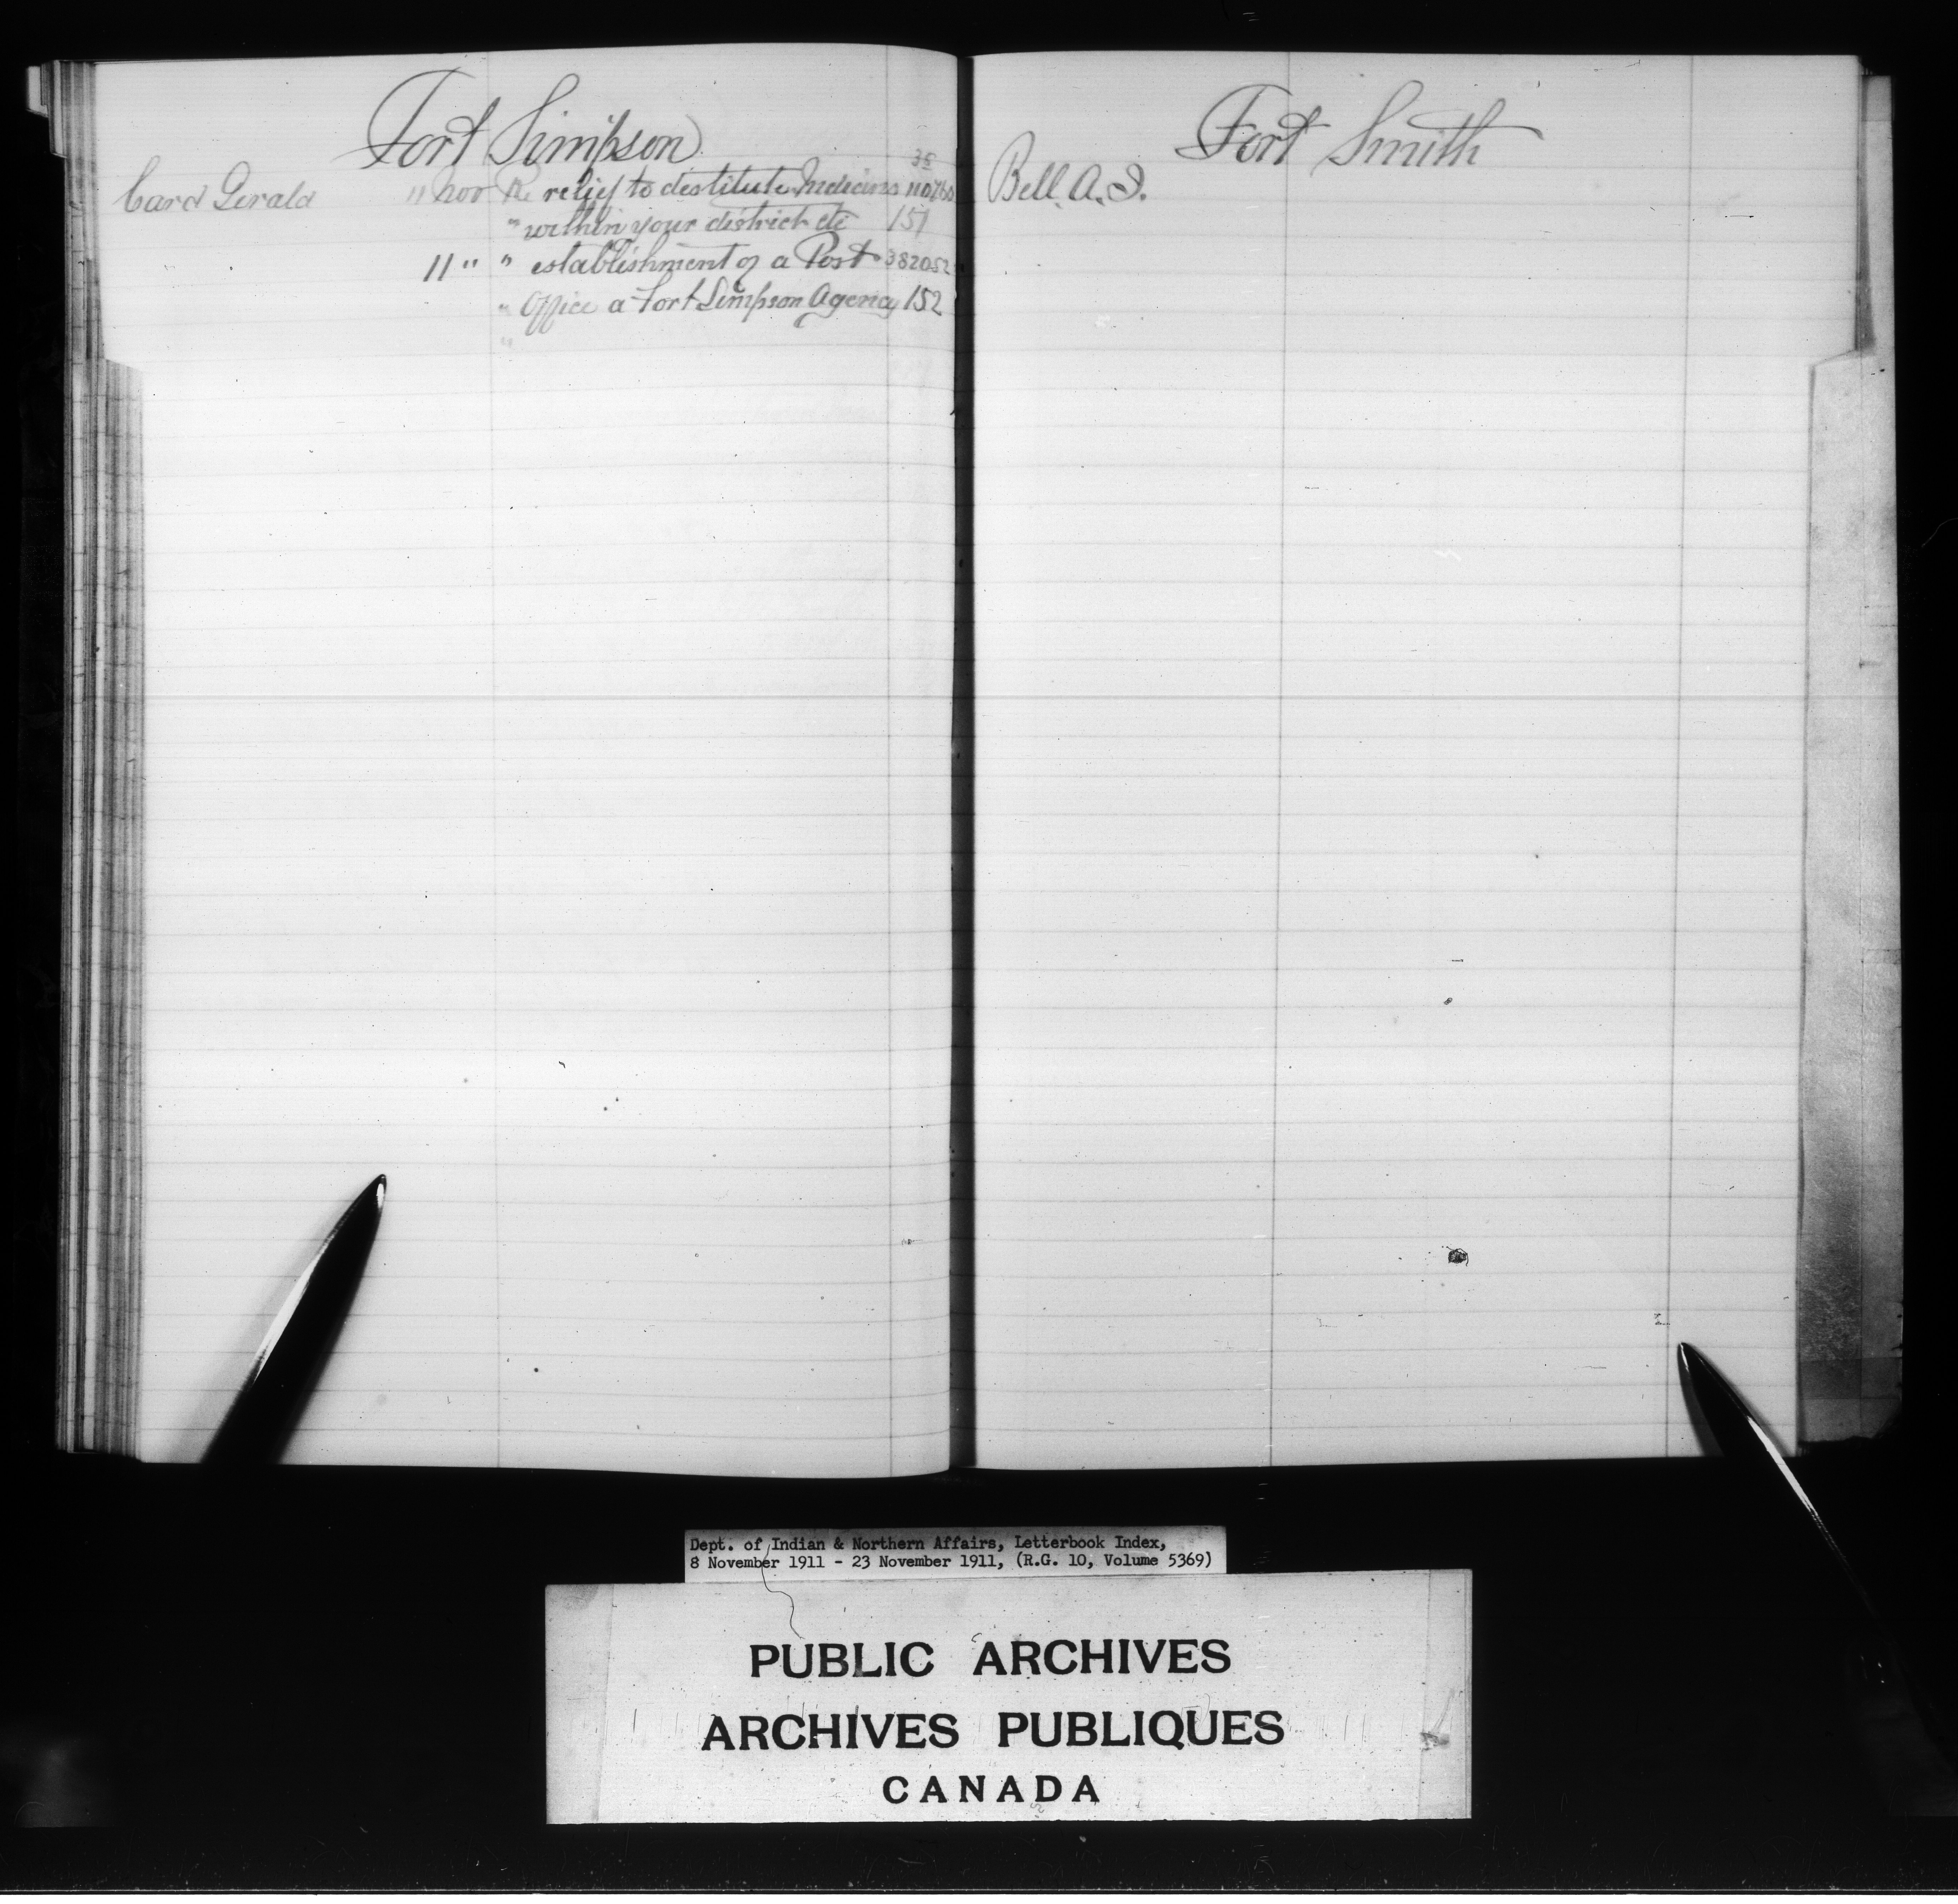 Fort Simpson
38
Card Gerald 11 Nov Re relief to destitute Indians 110760
" within your district etc 151
11 " " establishment of a Post 382052
" Office a Fort Simpson Agency 152
"
Fort Smith
Bell. A. J.
Dept. of Indian & Northern Affairs, Letterbook Index,
8 November 1911 - 23 November 1911, (R.G. 10, Volume 5369)
PUBLIC ARCHIVES
ARCHIVES PUBLIQUES
CANADA